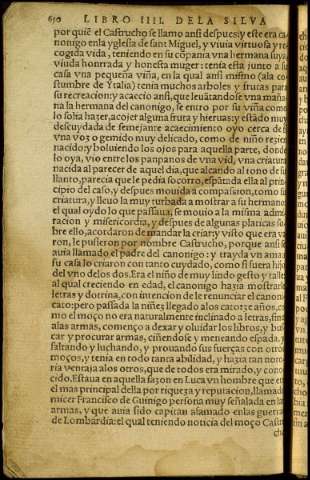 650 LIBRO IIII. DELA SILVA
por quiē el Castrucho se llamo ansi despues: y este era ca
nonigo enla yglesia de sant Miguel, y viuia virtuosa y re
cogida vida, teniendo en su cōpania vna hermana suya,
viuda honrrada y honesta muger: tenia esta junto a su
casa vna pequeña viña, en la qual ansi mismo (ala co
stumbre de Ytalia) tenia muchos arboles y frutas para
su recreacion: y acaecio ansi, que leuātandose vna maña
na la hermana del canonigo, se entro por su viña como
lo solia hazer, a cojer alguna fruta y hieruas: y estādo muy
descuydada de semejante acaecimiento oyo cerca de si
vna voz o gemido muy delicado, como de niño rezien
nacido: y boluiendo los ojos para aquella parte, donde
lo oya, vio entre los panpanos de vna vid, vna criatura
nacida al parecer de aquel dia, que alcando al tono de su
llanto, parecia que le pedia socorro, espātada ella al prin
cipio del caso, y despues mouida a compassion, tomo su
criatura, y lleuo la muy turbada a mostrar a su hermano:
el qual oydo lo que passaua, se mouio a la misma admi
racion y misericordia, y despues de algunas platicas so
bre ello, acordaron de mandar la criar: y visto que era va
ron, le pusieron por nombre Castrucho, porque ansi se
auia llamado el padre del canonigo: y trayda vn ama
su casa lo criaron con tanto cuydado, como si fuera hijo
del vno delos dos. Era el niño de muy lindo gesto y talle
al qual creciendo en edad, el canonigo hazia mostrarle
letras y dotrina, con intencion de le renunciar el canoni
cato: pero passada la niñez llegado alos catorze años, co
mo el moço no era naturalmente inclinado a letras, sino
alas armas, començo a dexar y oluidar los libros, y bus
car y procurar armas, ciñendose y meneando espada, y
saltando y luchando, y prouando sus fuerças con otros
moços, y tenia en todo tanra abilidad, y hazia tan noto
ria ventaja alos otros, que de todos era mirado, y cono
cido. Estaua en aquella sazon en Luca vn hombre que era
el mas principal della por riqueza y reputacion, llamado
micer Francisco de Guinigo persona muy señalada en las
armas, y que auia sido capitan afamado enlas guerras
de Lombardia: el qual teniendo noticia del moço Castru
cho